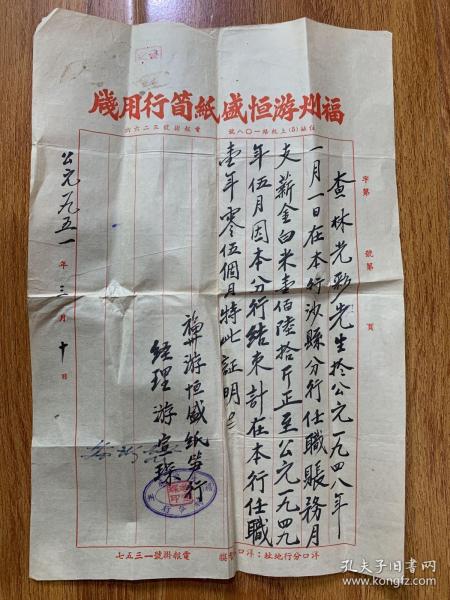 福州游恒盛紙筍行用牋
住址(8)上杭路一〇八號
電報掛號三二六六
字第 號第 頁
查林光彩先生於公元一九四八年
一月一日在本行沙縣分行任職賬務月
支薪金白米壹佰陸拾斤正至公元一九四九
年伍月因本分行結束計在本行任職
壹年零伍個月特此証明
福州游恒盛紙筍行
經理 游
公元一九五一年三月十日
洋口分行地址：洋口
電報掛號一三五七
孔夫子旧书网